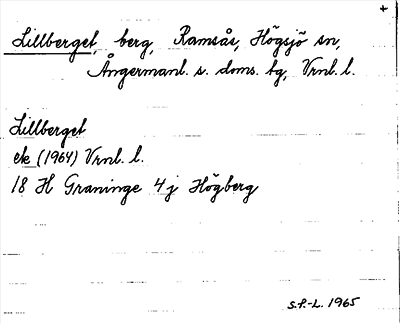 +
Lillberget, berg, Ramsås, Högsjö sn,
Ångermanl. s. doms. tg, Vrnl. l.
Lillberget
ek (1964) Vrnl. l.
18 H Graninge 4 j Högberg
S.P.-L. 1965